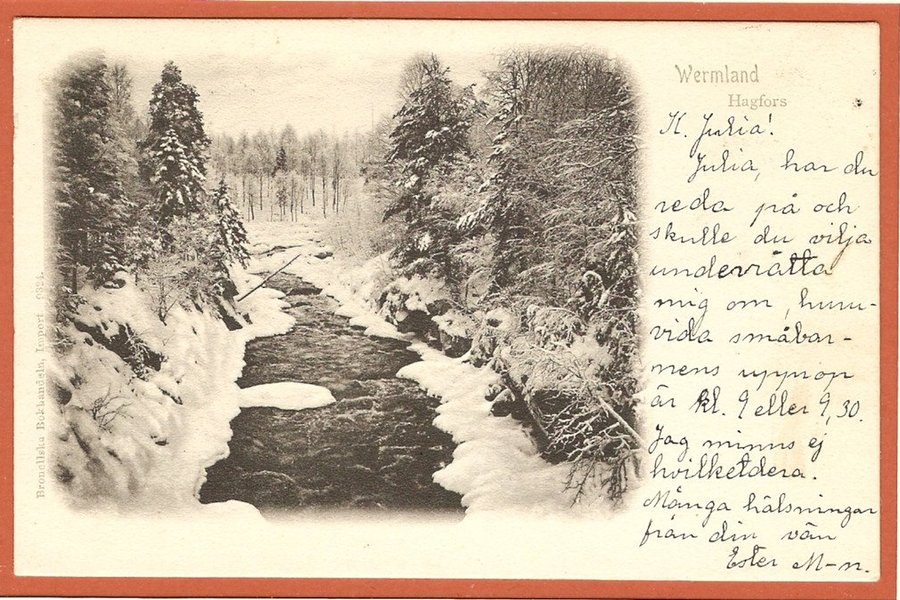 Wermland
Hagfors
K. Julia!
Julia, har du
reda på och
skulle du vilja
underrätta
mig om, huru-
vida småbar-
nens upprop
är kl. 9 eller 9,30.
Jag minns ej
hvilketdera.
Många hälsningar
från din vän
Ester M-n.
Broncllska Bokhandeln, Import 932L.